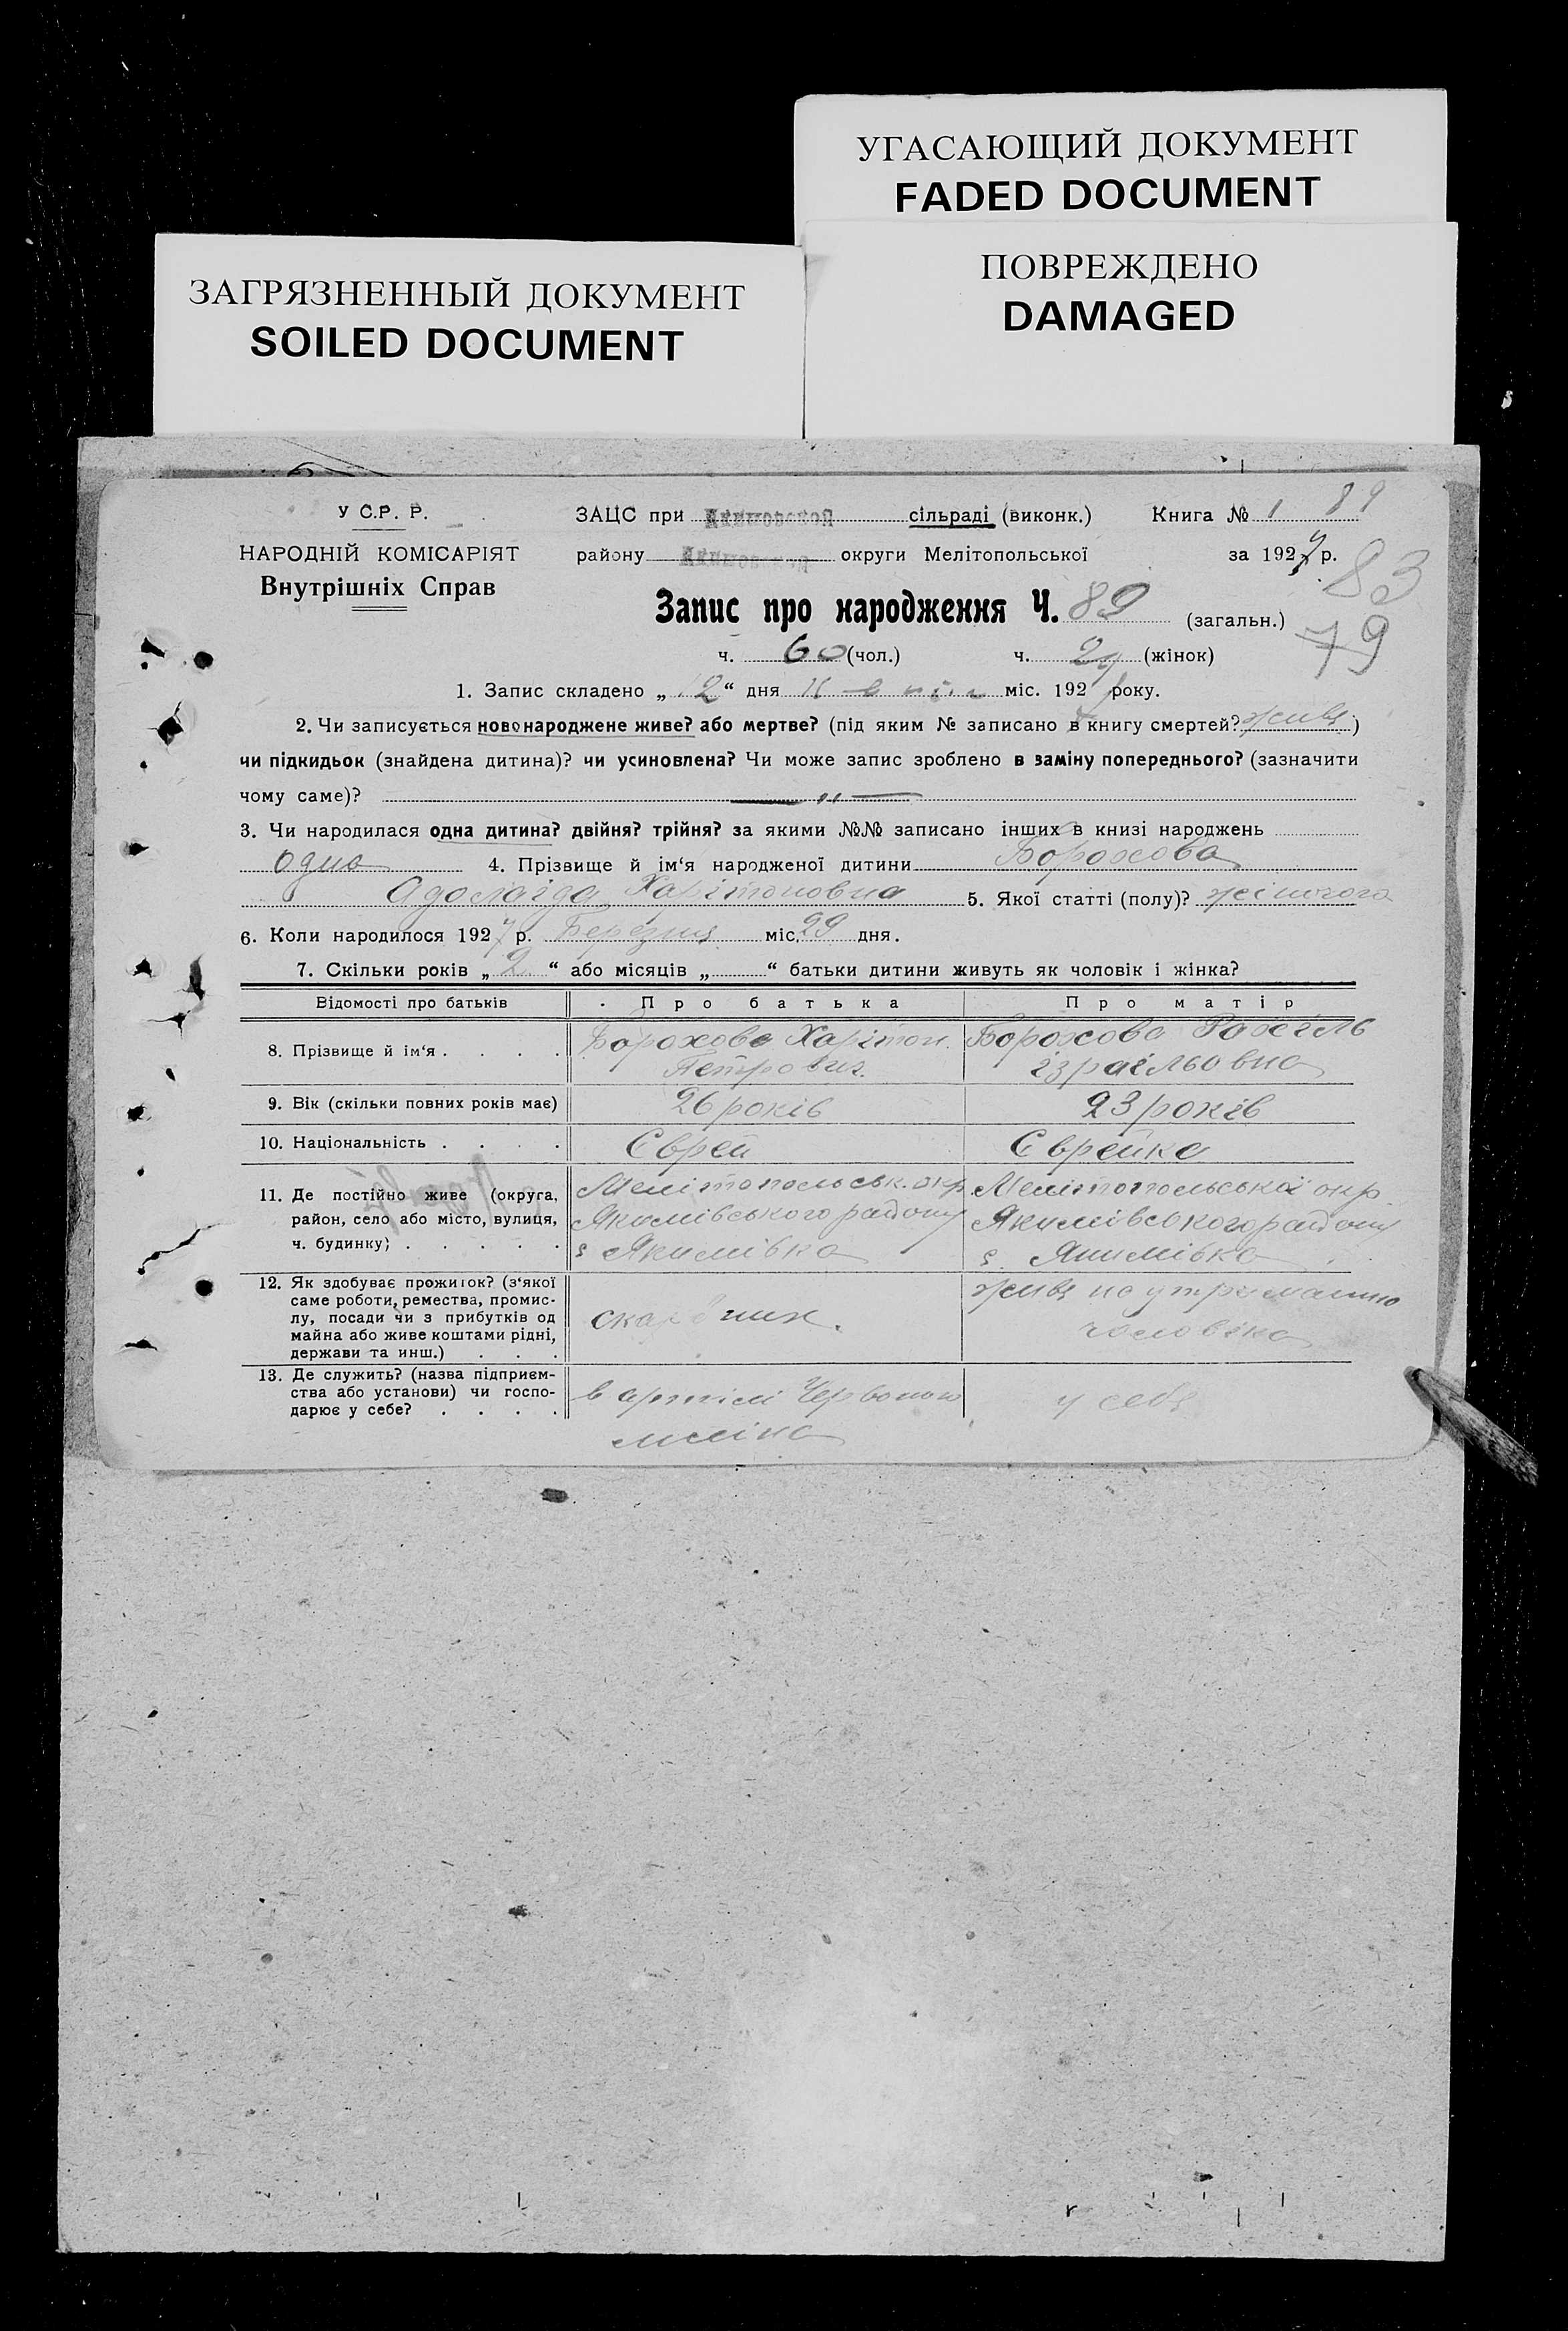 УГАСАЮЩИЙ ДОКУМЕНТ
FADED DOCUMENT
ПОВРЕЖДЕНО
DAMAGED
ЗАГРЯЗНЕННЫЙ ДОКУМЕНТ
SOILED DOCUMENT
У С.Р. Р.
НАРОДНІЙ КОМІСАРІЯТ
Внутрішніх Справ
ЗАЦС при сільраді (виконк.) Книга № 1 89
району округи Мелітопольської за 1927 р.
83
Запис про народження Ч. 89 (загальн.)
79
ч. 60 (чол.) ч. 29 (жінок)
1. Запис складено „ 12 “ дня міс. 192 року.
2. Чи записується новонароджене живе? або мертве? (під яким № записано в книгу смертей? живе)
чи підкидьок (знайдена дитина)? чи усиновлена? Чи може запис зроблено в заміну попереднього? (зазначити
чому саме)? — „ —
3. Чи народилася одна дитина? двійня? трійня? за якими №№ записано інших в книзі народжень
одна 4. Прізвище й ім‘я народженої дитини Борохова
Адолаіда Харітоновна 5. Якої статті (полу)? жіночого
6. Коли народилося 1927 р. Березня міс. 29 дня.
7. Скільки років „ 2 “ або місяців „ “ батьки дитини живуть як чоловік і жінка?
Відомості про батьків Про батька Про матір
8. Прізвище й ім‘я . . . . Борохов Харітон Борохова Рахіль
Петрович. Ізраільовна
9. Вік (скільки повних років має) 26 років 23 років
10. Національність . . . . Єврей Єврейка
11. Де постійно живе (округа, район, село або місто, вулиця, ч. будинку) . . . . .
Мелітопольськ. окр. Мелітопольської окр.
Якимівського району Якимівського району
с Якимівка с. Якимівка
12. Як здобуває прожиток? (з‘якої
саме роботи, ремества, промис-
лу, посади чи з прибутків од
майна або живе коштами рідні,
держави та инш.) . . .
живе на утриманню
чоловіка
13. Де служить? (назва підприєм-
ства або установи) чи госпо-
дарює у себе? . . . .
в артілі Червоного у себе